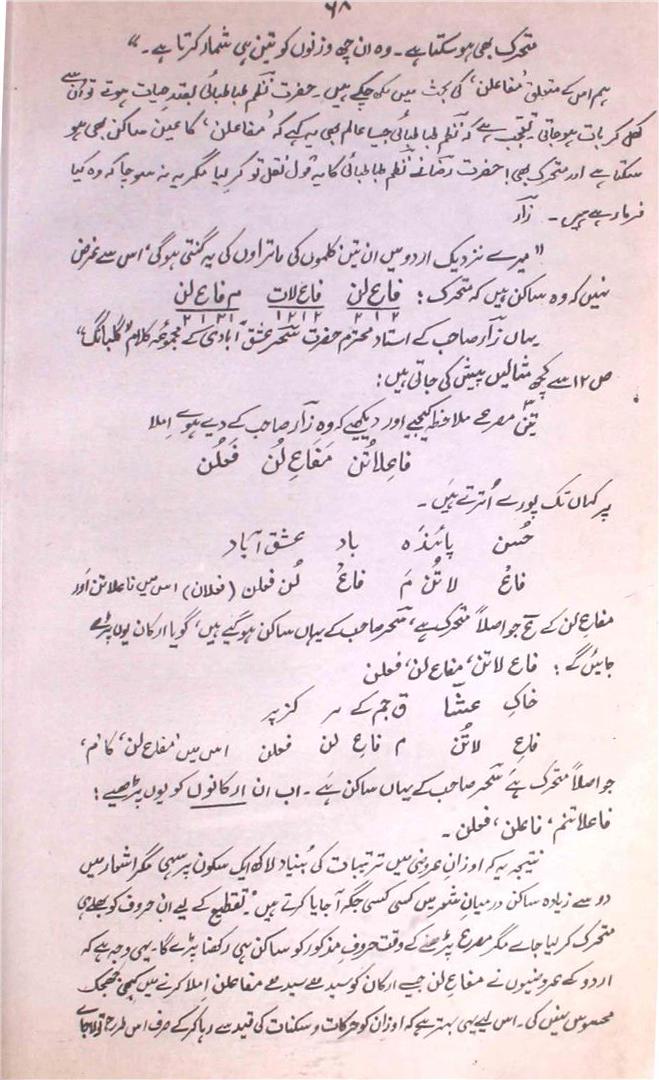 ۶۸
متحرک بھی ہو سکتا ہے۔ وہ ان چھ وزنوں کو تین ہی شمار کرتا ہے۔"
ہم اس کے متعلق 'مفاعلن' کی بحث میں لکھ چکے ہیں۔ حضرت نظم طباطبائی بقید حیات ہوتے تو ان سے
کھل کر بات ہو جاتی تعجب ہے کہ نظم طباطبائی جیسا عالم بھی یہ کہے کہ 'مفاعلن' کا عین ساکن بھی ہو
سکتا ہے اور متحرک بھی! حضرت رضا نے نظم طباطبائی کا یہ قول نقل تو کر لیا مگر یہ نہ سوچا کہ وہ کیا
فرما رہے ہیں۔ زار
"میرے نزدیک اردو میں ان تین کلموں کی ماتراوں کی یہ گنتی ہوگی، اس سے غرض
نہیں کہ وہ ساکن ہیں کہ متحرک: فاع لن فاع لات م فاع لن
۲ ۱ ۲ ۱ ۲ ۱ ۲ ۲ ۱ ۲ ۱
یہاں زار صاحب کے استاد محترم حضرت سحر عشق آبادی کے مجموعہ کلام "گلبانگ"
ص ۱۲ سے کچھ مثالیں پیش کی جاتی ہیں:
تین ۳ مصرعے ملاحظہ کیجیے اور دیکھیے کہ وہ زار صاحب کے دیے ہوے املا
فاعلاتن مفاع لن فعلن
پر کہاں تک پورے اُترتے ہیں۔
حُسن پائندہ باد عشق آباد
فاعْ لاتُن مَ فاعْ لُن فعلن (فعلان) اس میں فاعلاتن اور
مفاع لن کے ع جو اصلاً متحرک ہے، سحر صاحب کے یہاں ساکن ہو گیے ہیں، گویا ارکان یوں پڑھے
جائیں گے: فاع لاتن، مفاع لن، فعلن
خاکِ عشا ق جم کے مرکز پر
فاعِ لاتُن م فاعِ لن فعلن اس میں 'مفاع لن' کا 'م'
جو اصلاً متحرک ہے سحر صاحب کے یہاں ساکن ہے۔ اب ان ارکانوں کو یوں پڑھیے:
فاعلاتنم، فاعلن، فعلن۔
نتیجہ یہ کہ اوزانِ عروضی میں ترتیبات کی بُنیاد لاکھ ایک سکون پر سہی مگر اشعار میں
دو سے زیادہ ساکن درمیانِ شعر میں کسی کسی جگہ آ جایا کرتے ہیں۔ تقطیع کے لیے ان حروف کو بھلے ہی
متحرک کر لیا جاے مگر مصرع پڑھنے کے وقت حروف مذکور کو ساکن ہی رکھنا پڑے گا۔ یہی وجہ ہے کہ
اردو کے عروضیوں نے مفاع لن جیسے ارکان کو سیدھے سیدھے مفاعلن املا کرنے میں کبھی جھجک
محسوس نہیں کی۔ اس لیے یہی بہتر ہے کہ اوزان کو حرکات و سکنات کی قید سے رہا کر کے صرف اس طرح تولا جاے